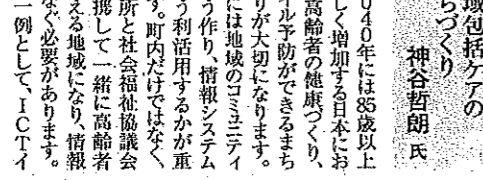 域包括ケアの
ちづくり
神谷哲朗 氏
040年には85歳以上
しく増加する日本にお
高齢者の健康づくり、
イル予防ができるまち
りが大切になります。
には地域のコミュニティ
う作り、情報システム
う利活用するかが重
す。町内だけではなく、
所と社会福祉協議会
携して一緒に高齢者
える地域になり、情報
なぐ必要があります。
一例として、ICTイ